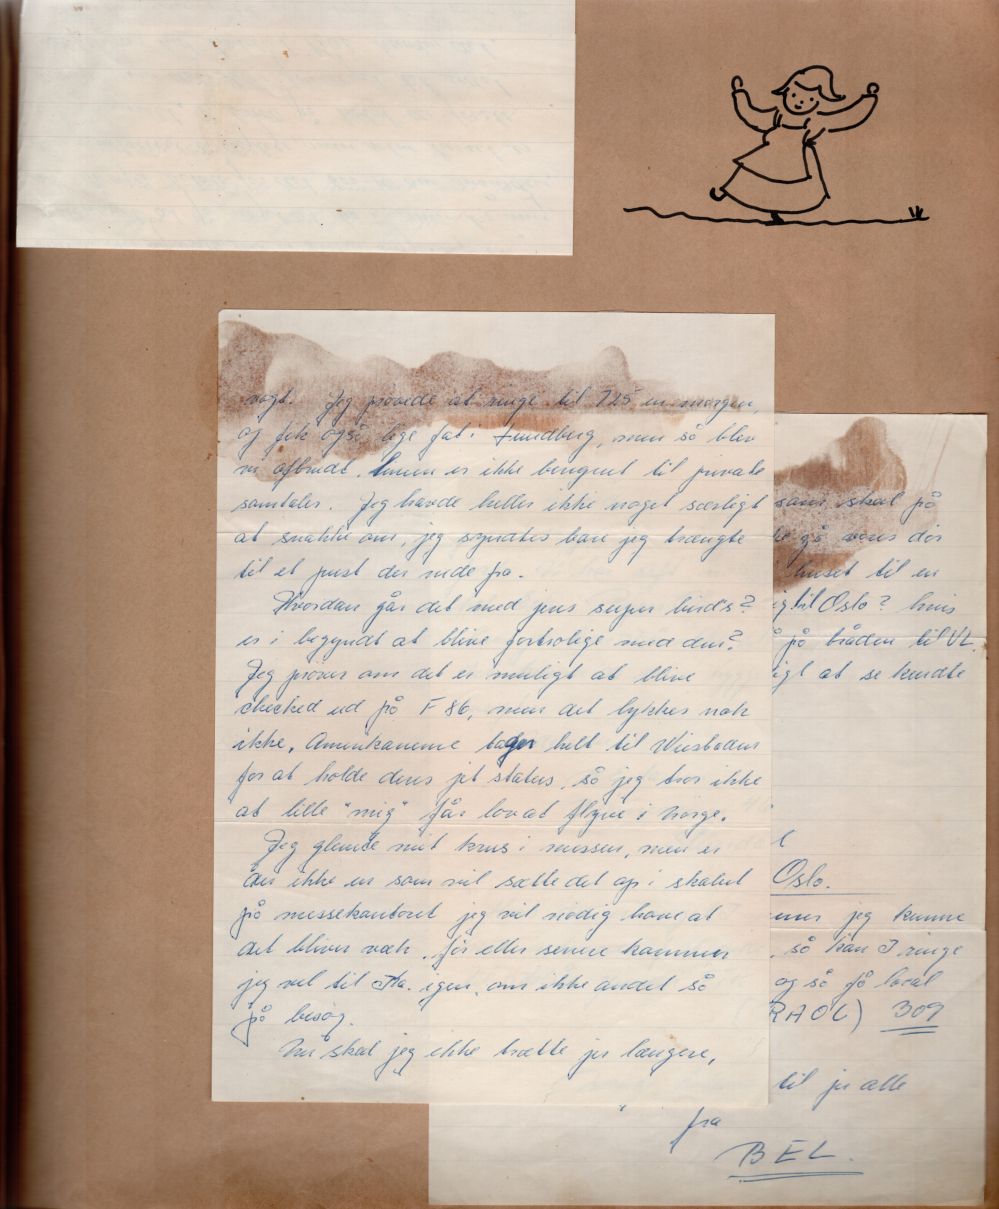 vagt. Jeg prøvede at ringe til 725 en morgen,
og fik også lige fat i Lundberg, men så blev
vi afbrudt. Linien er ikke beregnet til private
samtaler. Jeg havde heller ikke noget særligt
at snakke om, jeg syndtes bare jeg trængte
til et pust der nede fra.
Hvordan går det med jeres super bird's?
er i begyndt at blive fortrolige med dem?
Jeg prøver om det er muligt at blive
checked ud på F 86, men det lykkes nok
ikke. Amerikanerne tager helt til Wiesbaden
for at holde deres jet status, så jeg tror ikke
at lille "mig" får lov at flyve i Norge.
Jeg glemte mit krus i messen, men er
der ikke en som vil sætte det op i skabet
på messekontoret jeg vil nødig have at
det bliver væk. før eller senere kommer
jeg vel til Ka. igen, om ikke andet så
på besøg.
Nu skal jeg ikke trætte jer længere,
som skal på
gå vores dør
huset til en
til Oslo? hvis
på tråden til VL.
at se kendte
Oslo.
jeg kunne
, så kan I ringe
og så få local
309
til jer alle
fra
BEL.